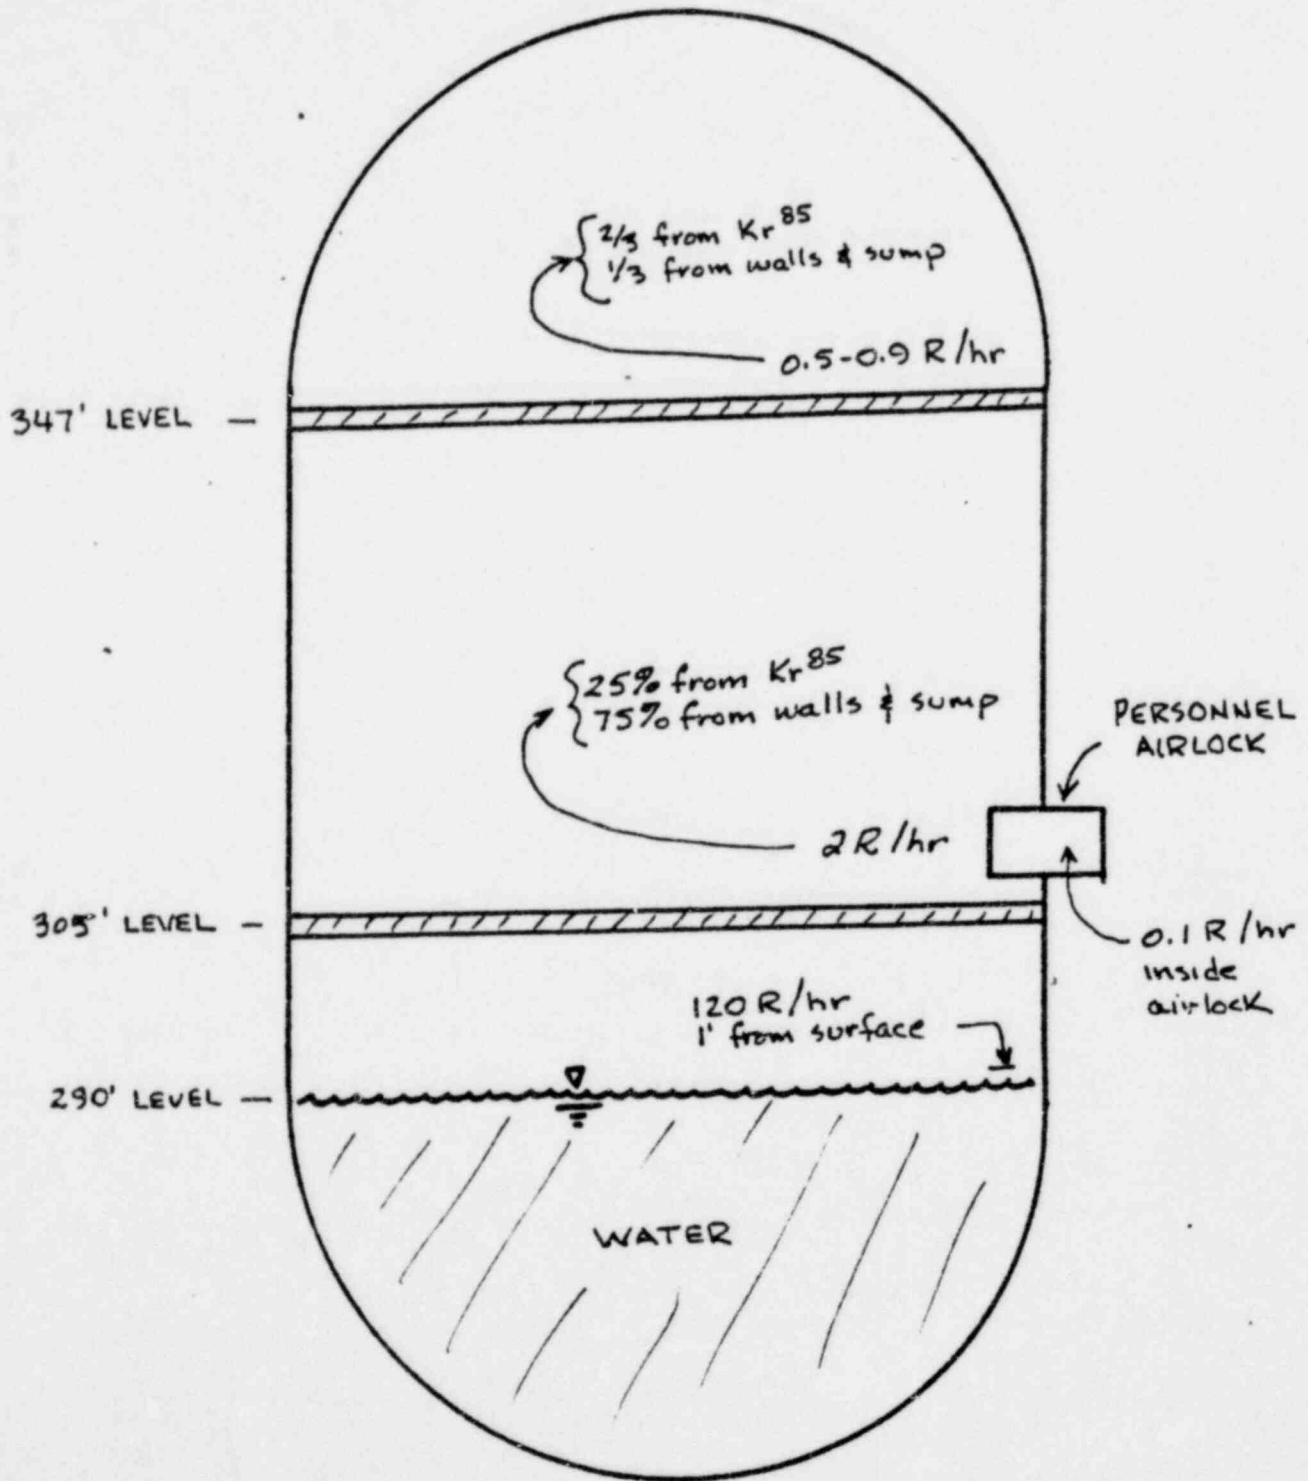 2/3 from Kr 85
1/3 from walls & sump
0.5-0.9 R/hr
347' LEVEL —
25% from Kr 85
75% from walls & sump
PERSONNEL
AIRLOCK
2 R/hr
305' LEVEL —
0.1 R/hr
inside
airlock
120 R/hr
1' from surface
290' LEVEL —
WATER